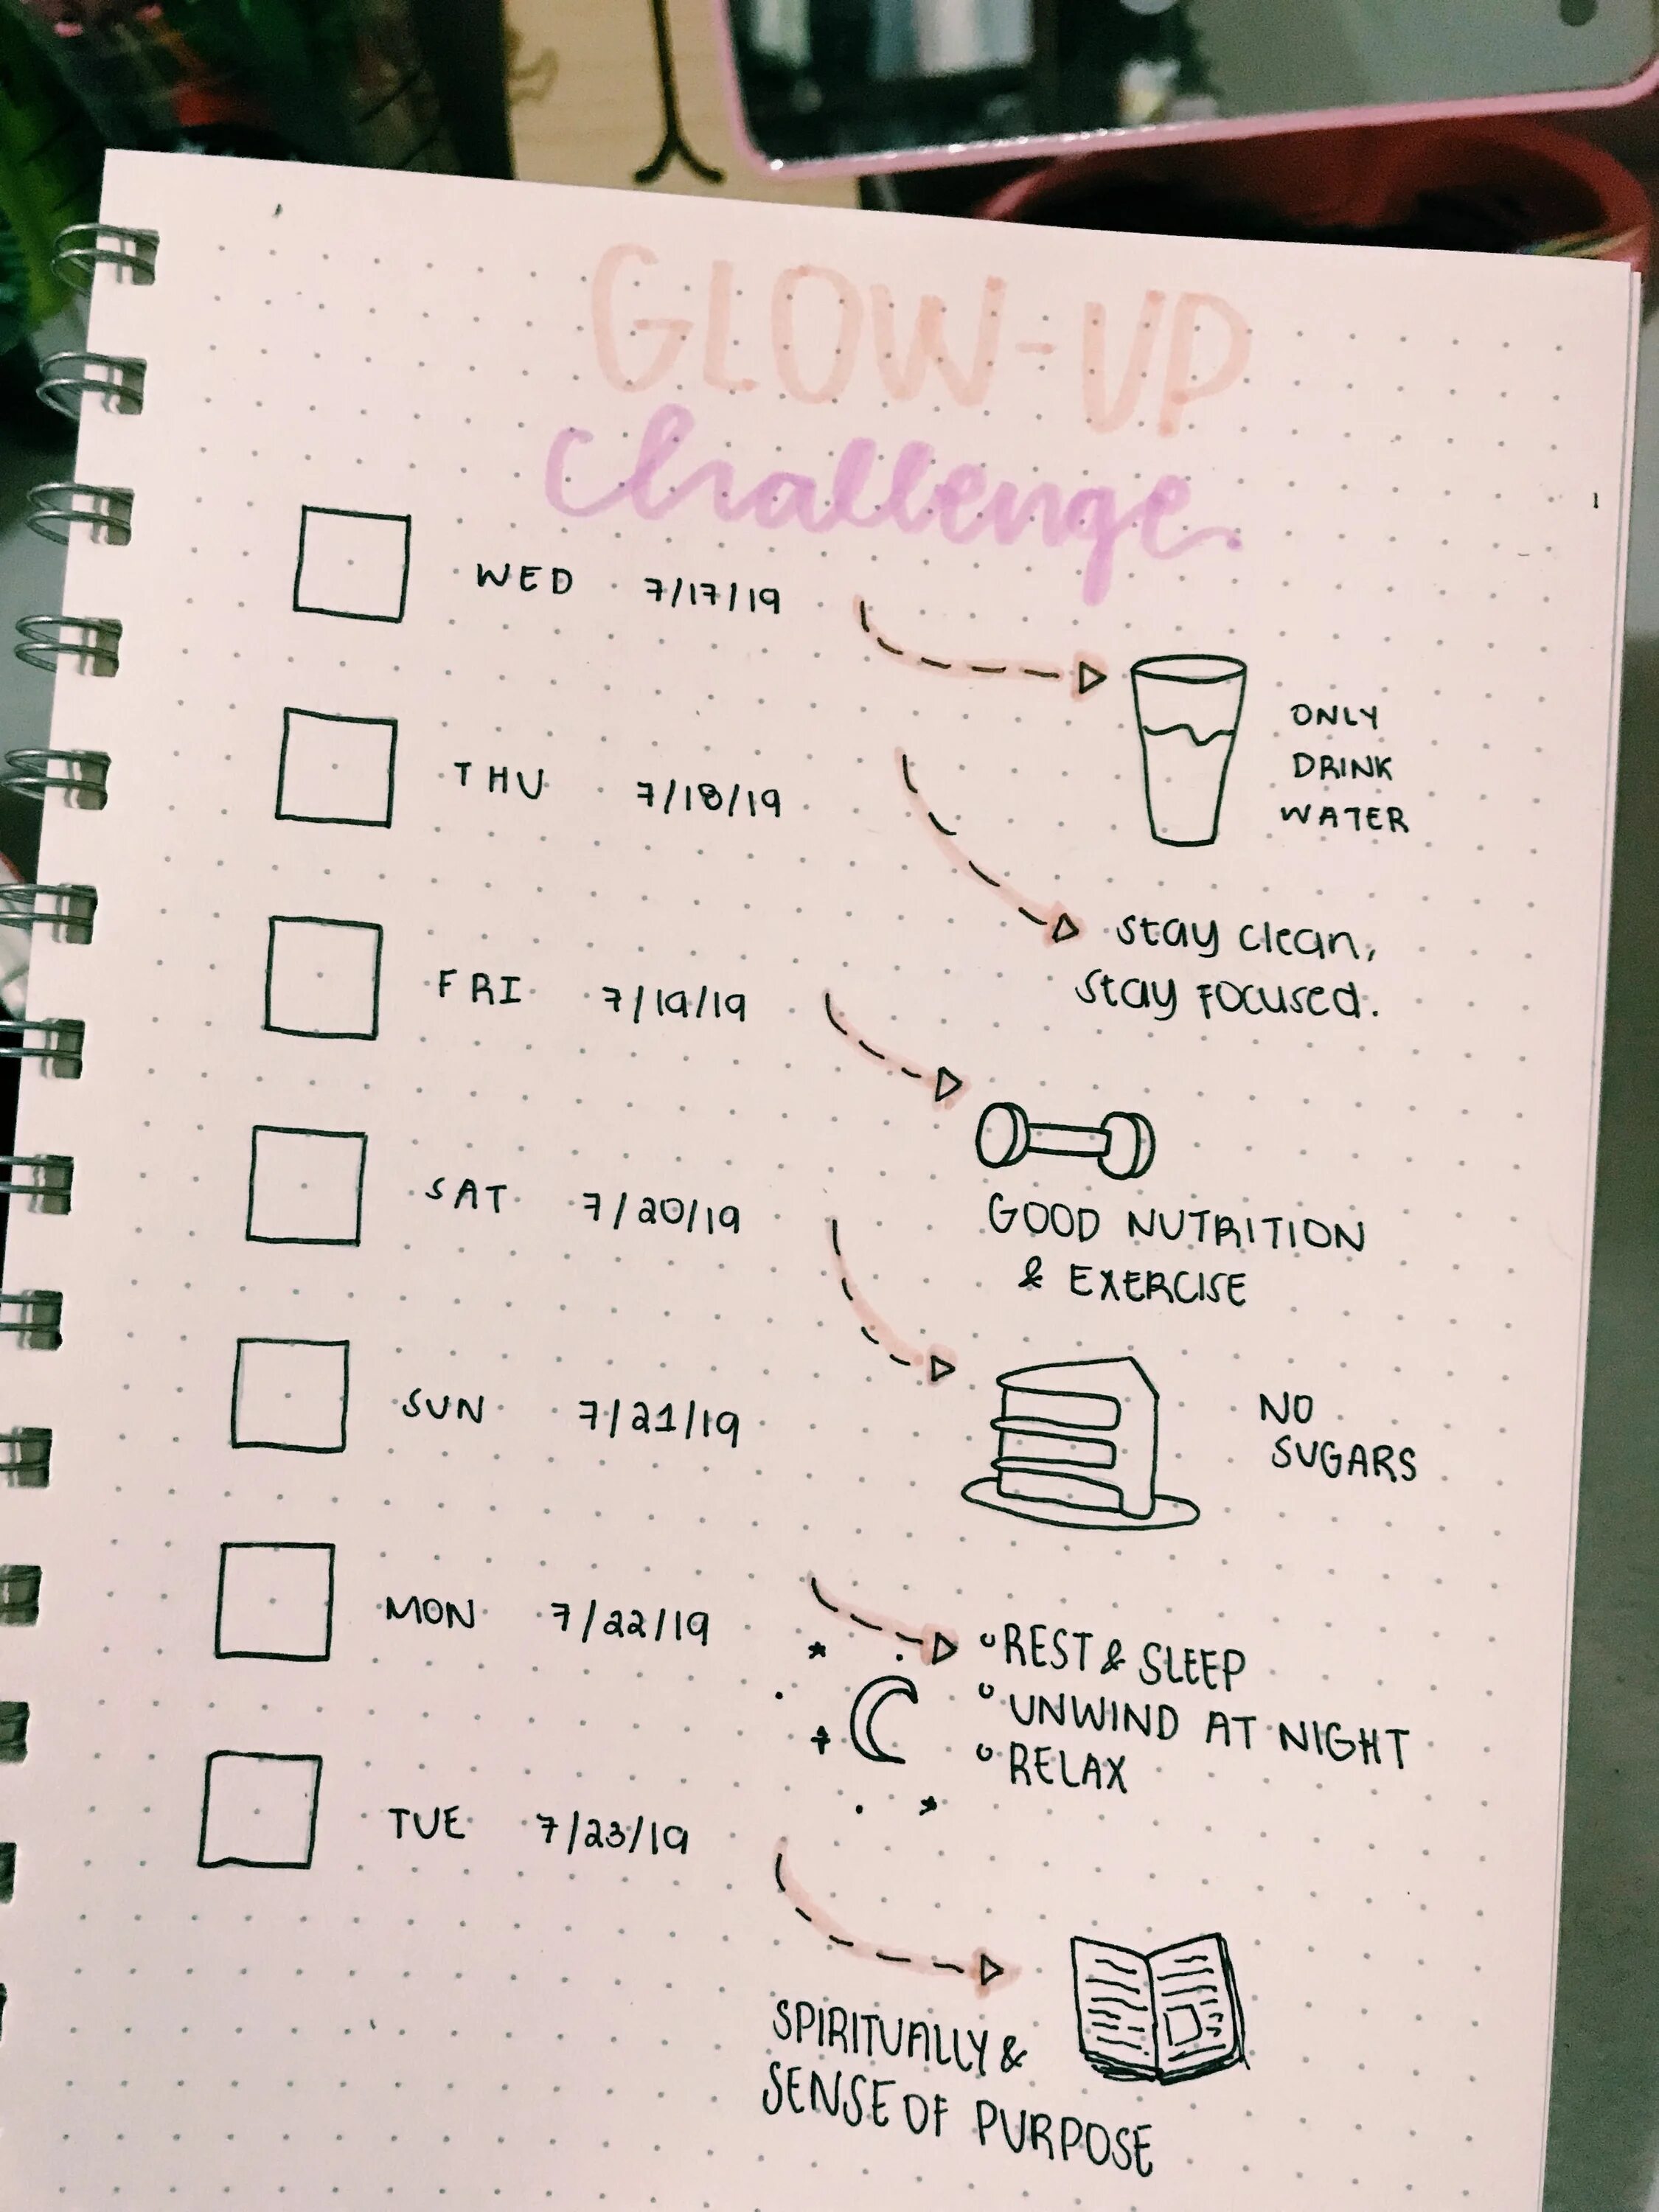 GLOW-UP
Challenge
WED 7/17/19
ONLY
DRINK
WATER
THU 7/18/19
stay clean,
stay focused.
FRI 7/19/19
GOOD NUTRITION
& EXERCISE
SAT 7/20/19
NO
SUGARS
SUN 7/21/19
MON 7/22/19
REST & SLEEP
UNWIND AT NIGHT
RELAX
TUE 7/23/19
SPIRITUALLY &
SENSE OF PURPOSE